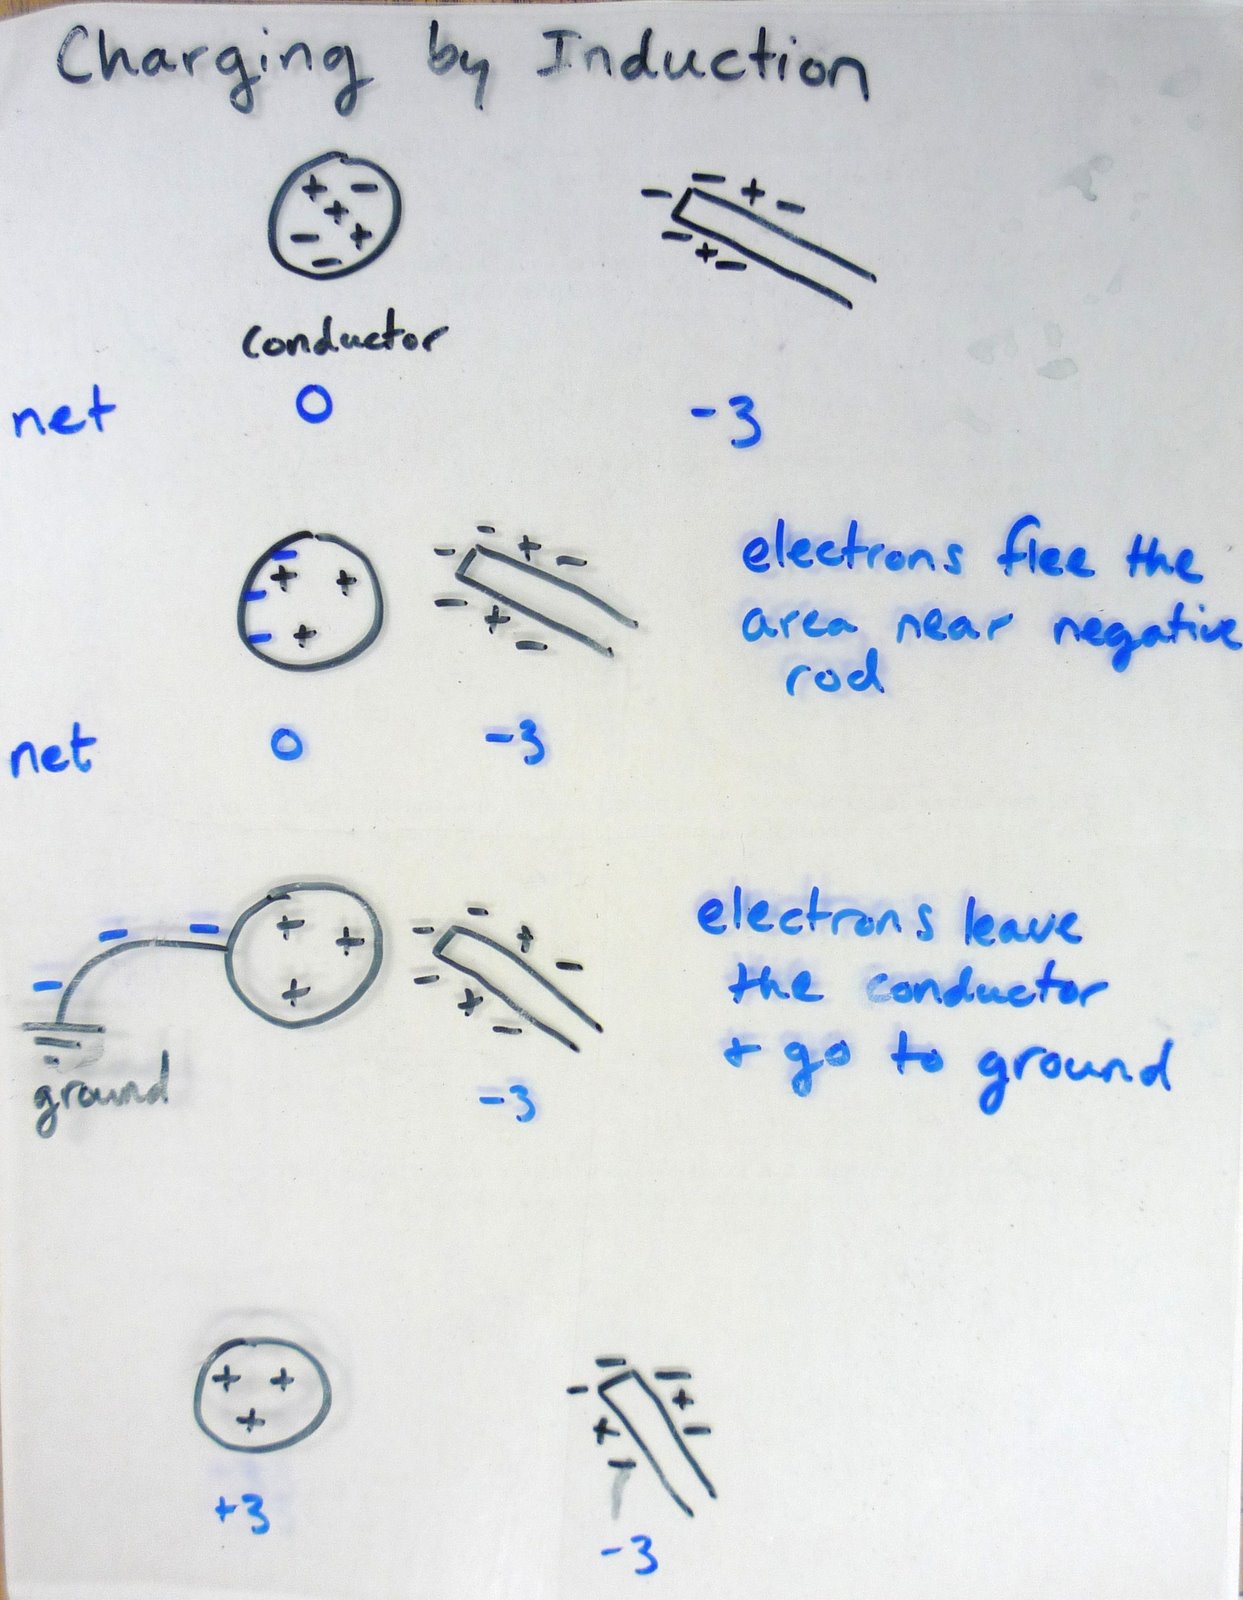 Charging by Induction
+ - + - + -
- - + -
- + -
conductor
net 0 -3
- + + - - +
- - + -
- + -
electrons flee the
area near negative
rod
net 0 -3
- - -
+ + +
- - + -
- + -
electrons leave
the conductor
+ go to ground
ground
-3
+ + +
- - - + + - -
+3
-3